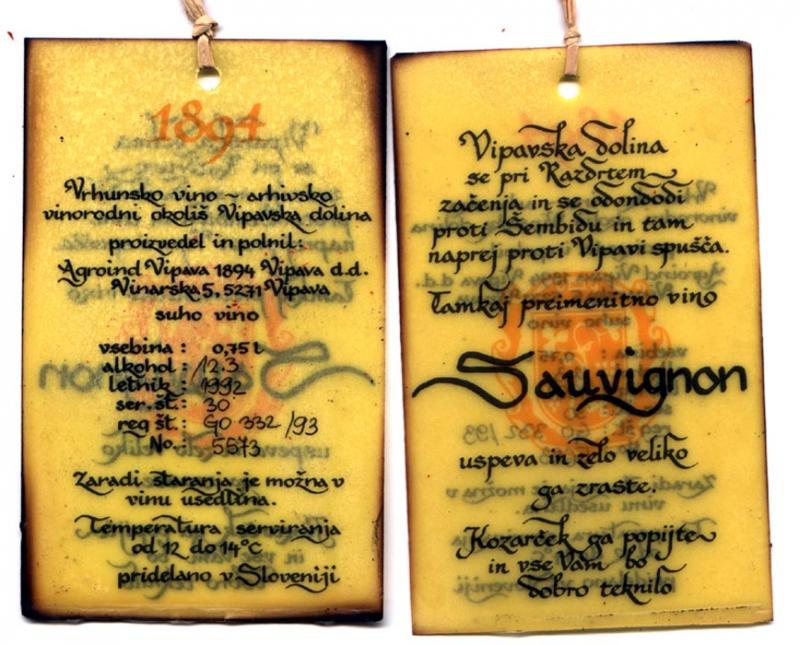 1894
Vrhunsko vino ~ arhivsko
vinorodni okoliš Vipavska dolina
proizvedel in polnil:
Agroind Vipava 1894 Vipava d.d.
Vinarska 5, 5271 Vipava
suho vino
vsebina : 0,75 l
alkohol : 12.3
letnik : 1992
ser. št. : 30
reg št. : GO 332 /93
No. : 5573
Zaradi staranja je možna v
vinu usedlina.
Temperatura serviranja
od 12 do 14°C
pridelano v Sloveniji
Vipavska dolina
se pri Razdrtem
začenja in se odondodi
proti Šembidu in tam
naprej proti Vipavi spušča.
Tamkaj preimenitno vino
Sauvignon
uspeva in zelo veliko
ga zraste.
Kozarček ga popijte
in vse Vam bo
dobro teknilo